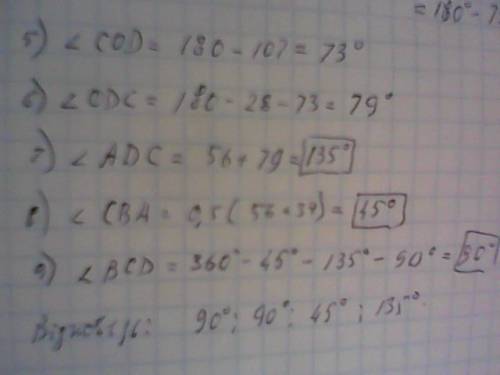 = 180° - 7
5) ∠COD = 180 - 107 = 73°
6) ∠ODC = 180 - 28 - 73 = 79°
7) ∠ADC = 56 + 79 = 135°
8) ∠CBA = 0,5 ( 56 + 34) = 45°
9) ∠BCD = 360° - 45° - 135° - 90° = 90°
Відповідь: 90° ; 90° ; 45° ; 135°.